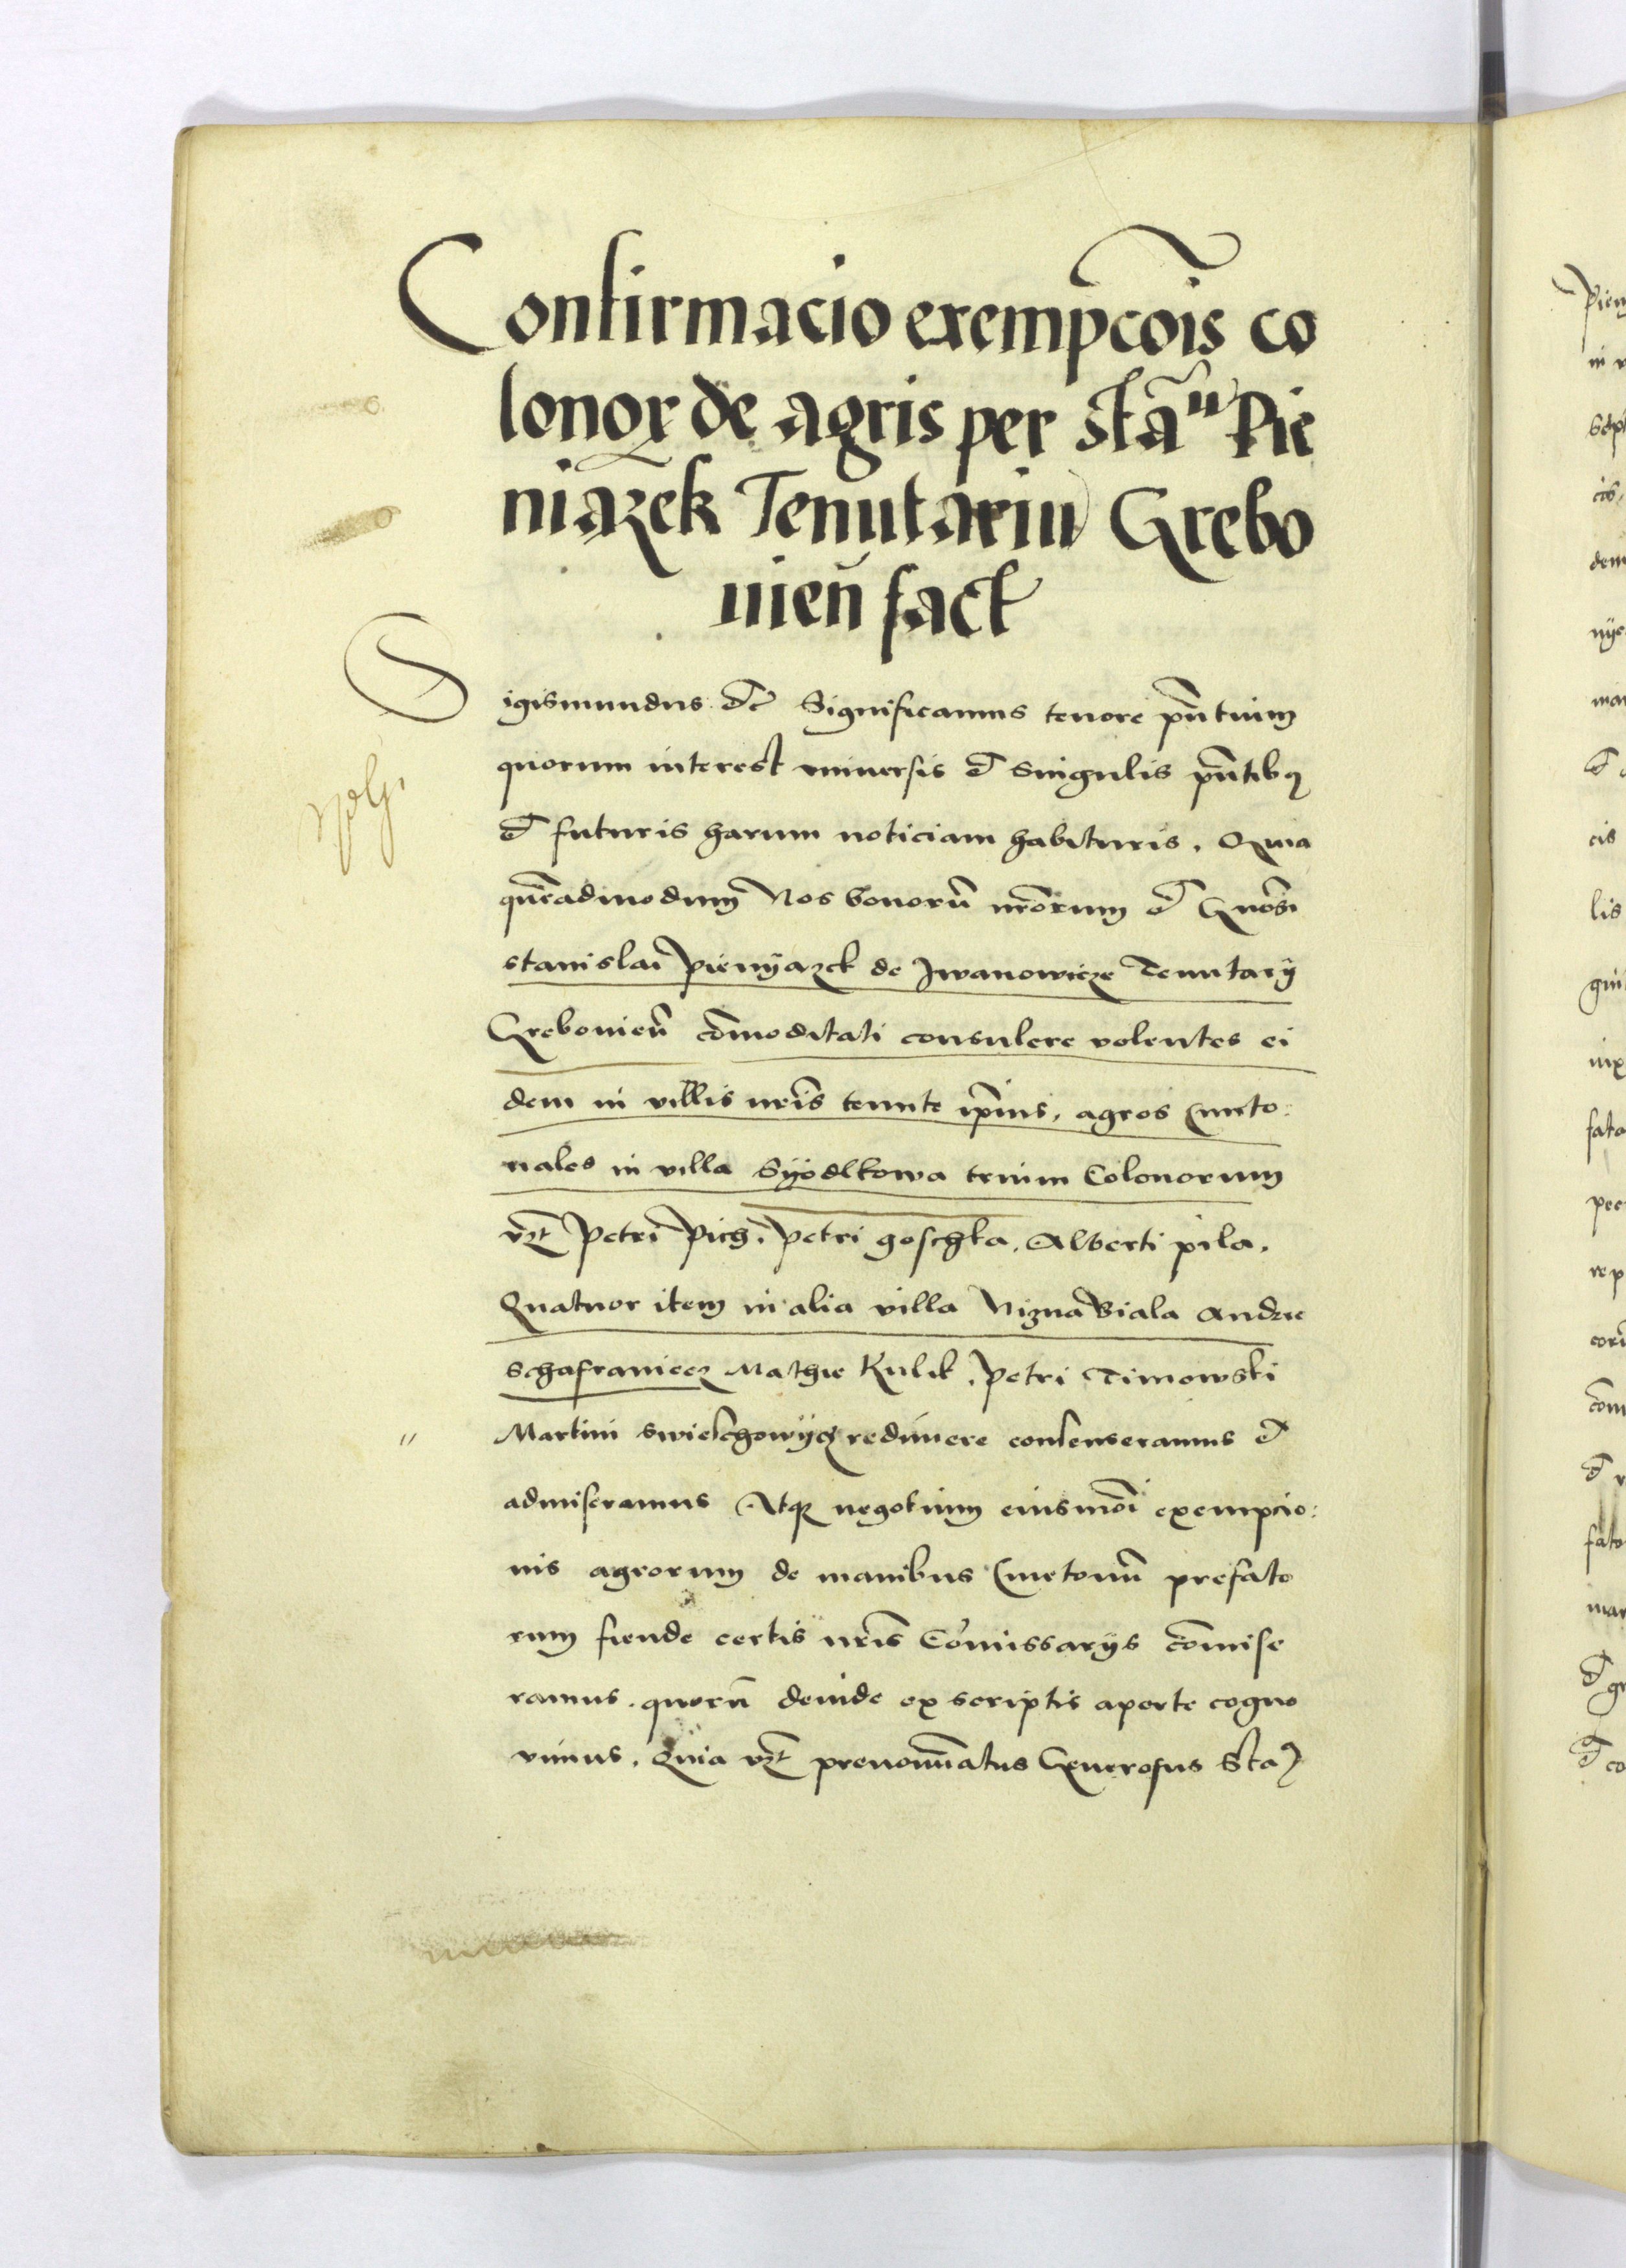 Confirmacio exempcōis co
lonoꝝ de agris per Stāⁿ Pie
niazek Tenutariū Grebo
nieñ fact
Sigismundus etc̃ Significamus tenore pn̄tium
quorum interest vniuersis et singulis pn̄tibꝫ
et futuris harum noticiam habituris. Quia
quēadmodum Nos bonorū nrōrum et Gnōsi
stanislai Pienÿazek de Jwanowicze Tenutarÿ
Grebonieñ cōmoditati consulere volentes ei
dem in villis nrīs tenute ip̄ius, agros Cmeto:
nales in villa Syodlkowa trium Colonorum
vꝫt Petri Pich, Petri goschka, Alberti pila.
Quatuor item in alia villa Nizna Biala Andree
Schafraniecz Mathie Kulik, Petri Timowski
Martini Swiechowÿcz redimere consenseramus et
admiseramus Atqꝫ negotium eiusmōi exempcio:
nis agrorum de manibus Cmetonū prefato
rum fiende certis nrīs Comissarÿs cōmise
ramus. quorū deinde ex scriptis aperte cogno
vimus. Quia vꝫt prenominatus Generosus Sta